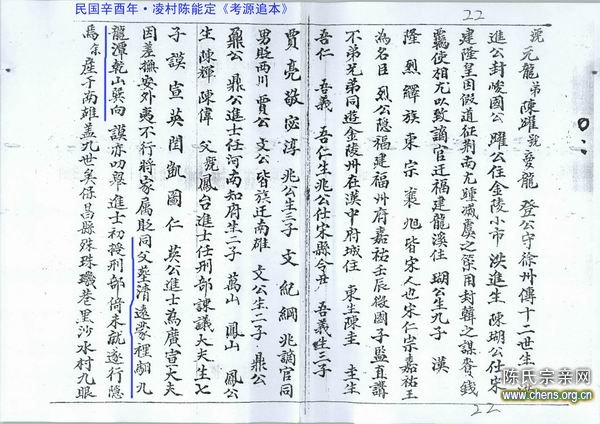 民国辛酉年·凌村陈能定《考源追本》
22
號元龍弟陳躍號夢龍 登公守徐州傳十二世生洪
進公封峻國公 躍公住金陵小市 洪進生 陳瑚公仕宋
建隆皇因假道征荆南尢踵滅虞之策用封韓之謀賫錢
驀使相尢以致謫官迁福建龍溪住 瑚公生九子 漠
隆 烈 鐸 族 東 宗 襄 旭 皆宋人也宋仁宗嘉祐王
為名臣 烈公隐福建福州府嘉祐壬辰後國子監直講
不弟兄弟同造金陵州在漢中府城住 東生陳圭 圭生
吾仁 吾義 吾仁生兆公仕宋縣令丑 吾義生三子
賈 亮 敬 宓 淳 兆公生三子 文 紀 綱 兆謫官同
男貶西川 賈公 文公皆族迁南雄 文公生二子·鼎公
鼐公 鼎公進士任河南知府生二子 萬山 鳳山 鳳公
生 陳輝 陳偉 父號鳳台進士任刑部諫議大夫生七
子 謨 宣 英 閏 凱 圖 仁 英公進士為廣宣大夫
因差撫安外夷不行將家属貶同父塋清遠蒙裡翩九
龍潭乾山巽向 謨亦叨舉進士初授刑部侍未就遂行隐
焉余産于南雄盖九世矣保昌縣殊珠璣巷里沙水村九眼
22
陈氏宗亲网
www.chens.org.cn